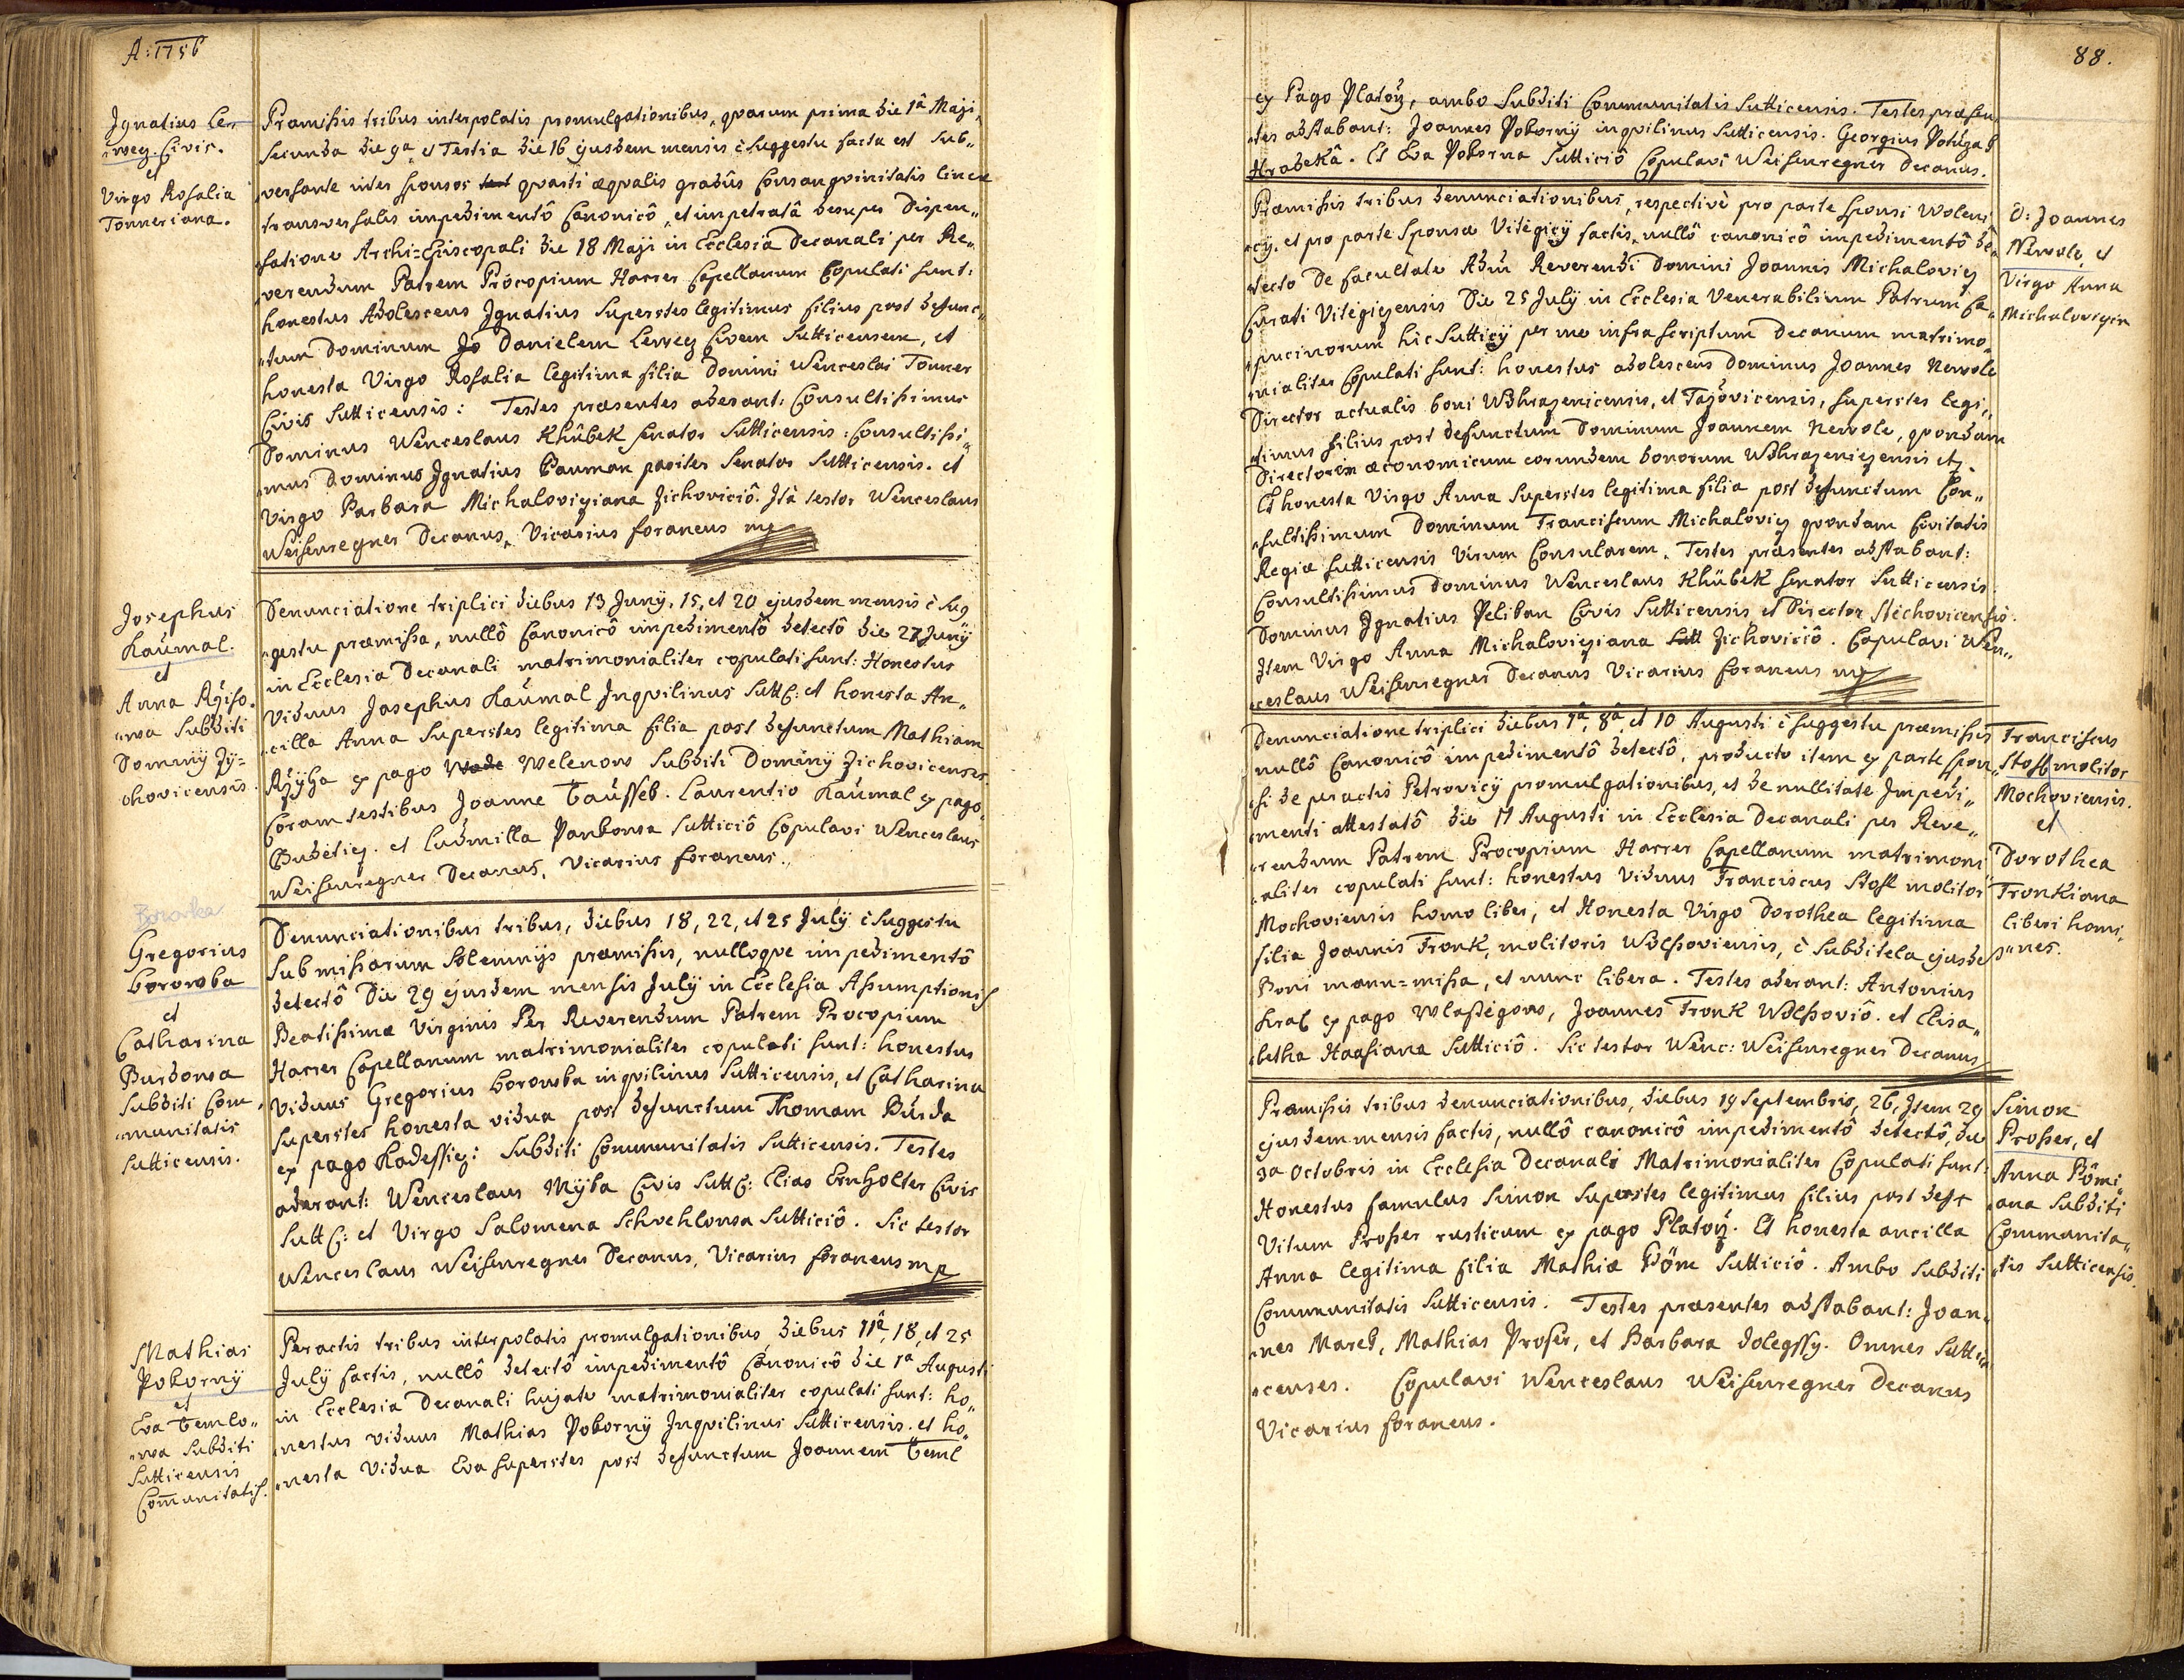 A: 1756
Ignatius Ler„
„weg. Civis.
et
Virgo Rosalia
Tonneriana.
Præmissis tribus interpolatis promulgationibus, qvarum prima die 1â Maji,
secunda die 9a, et Tertia die 16 ejusdem mensis è suggestu facta est sub„
versante inter sponsos qvarti æqvalis gradûs Consangvinitatis lineæ
transversalis impedimentô Canonicô, et impetratâ desuper Dispen„
„satione Archi=Episcopali die 18 Maji in Ecclesia Decanali per Re„
„verendum Patrem Procopium Harrer Capellanum Copulati sunt:
honestus Adolescens Ignatius superstes legitimus filius post defunc„
„tum Dominum Danielem Lerweg Civem Sutticensem, et
honesta Virgo Rosalia legitima filia Domini Wenceslai Tonner
Civis Sutticensis: Testes præsentes aderant: Consultissimus
Dominus Wenceslaus Khübek Senator Sutticensis: Consultissi„
„mus Dominus Ignatius Pauman pariter Senator Sutticensis. et
Virgo Barbara Michalovicziana Zichoviciô. Ità testor Wenceslaus
Weisenregner Decanus, Vicarius foraneus mp
Josephus
Kaúmal.
et
Anna Rziho„
„wa Subditi
Dominij Zy=
chovicensis.
Denunciatione triplici diebus 13 Junij, 15, et 20 ejusdem mensis è sug„
„gestu præmissa, nullô Canonicô impedimentô detectô die 27 Junij
in Ecclesia Decanali matrimonialiter copulati sunt: Honestus
Viduus Josephus Kaúmal Inqvilinus Sutt: et honesta An„
„cilla Anna superstes legitima filia post defunctum Mathiam
Rzyha ex pago Welenow Subditi Dominij Zichovicensis
Coram testibus Joanne Laurentio Kaúmal ex pago
Budeticz. et Ludmilla Pankowa Sutticiô Copulavi Wenceslaus
Weisenregner Decanus, Vicarius foraneus.
Borowka
Gregorius
Borowka
et
Catharina
Burdowa
Subditi Com„
„munitatis
Sutticensis.
Denunciationibus tribus, diebus 18, 22, et 25 Julij è suggestu
sub missarum solemnijs præmissis, nulloqve impedimentô
detectô Die 29 ejusdem mensis Julij in Ecclesia Assumptionis
Beatissimæ Virginis Per Reverendum Patrem Procopium
Harrer Capellanum matrimonialiter copulati sunt: honestus
Viduus Gregorius Borowka inqvilinus Sutticensis, et Catharina
superstes honesta vidua post defunctum Thomam Búrda
ex pago Kadessicz: Subditi Communitatis Sutticensis. Testes
aderant: Wenceslaus Myka Civis Sutt: Elias Ernholter Civis
Sutt: et Virgo Salomena Sutticiô. Sic testor
Wenceslaus Weisenregner Decanus, Vicarius foraneus mp
Mathias
Pokorný
et
Eva Temlo„
„wa Subditi
Sutticensis
Com̄unitatis.
Peractis tribus interpolatis promulgationibus diebus 11â, 18, et 25
Julij factis, nullô detectô impedimentô Canonicô die 1a Augusti
in Ecclesia Decanali hujate matrimonialiter copulati sunt: ho„
„nestus viduus Mathias Pokorný Inqvilinus Sutticensis. et ho„
„nesta Vidua Eva superstes post defunctum Joannem Teml
88.
ex Pago Platorz, ambo Subditi Communitatis Sutticensis. Testes præsen„
„tes adstabant: Joannes Pokorný inqvilinus Sutticensis. Georgius
Hradekâ. Et Eva Pokorna Sutticiô Copulavi Weisenregner Decanus.
D: Joannes
Nerwole, et
Virgo Anna
Michaloviczin
Præmissis tribus denunciationibus, respectivè pro parte sponsi Woleni„
„cij, et pro parte sponsæ Vitegicij factis, nullô canonicô impedimentô de„
„tecto De facultate Adm Reverendi Domini Joannis Michalovicz
Curati Vitegiczensis Die 25 July in Ecclesia Venerabilium Patrum Ca„
„pucinorum hic Sutticij per me infra scriptum Decanum matrimo„
„nialiter Copulati sunt: honestus adolescens Dominus Joannes Nerwole
Director actualis boni Wohrazenicensis, et Tažovicensis, superstes legi„
„timus filius post defunctum Dominum Joannem Nerwole, qvondam
Directorem œconomicum eorundem bonorum Wohrazeniczensis etz.
Et honesta Virgo Anna superstes legitima filia post defunctum Con„
„sultissimum Dominum Franciscum Michalovicz qvondam Civitatis
Regiæ Sutticensis Virum Consularem. Testes præsentes adstabant:
Consultissimus Dominus Wenceslaus Khübek Senator Sutticensis
Dominus Ignatius Pelikan Civis Sutticensis et Director Stichovicensis.
Item Virgo Anna Michalovicziana Zichoviciô. Copulavi Wen„
„ceslaus Weisenregner Decanus Vicarius foraneus mp
Franciscus
Stoft molitor
Mochoviensis.
et
Dorothea
Fronkiana
liberi homi„
„nes.
Denunciatione triplici diebus 1â, 8â, et 10 Augusti è suggestu præmissis
nullô Canonicô impedimentô detectô, producto item ex parte spon„
„si de peractis Petrovicij promulgationibus, et de nullitate Impedi„
„menti attestatô die 17 Augusti in Ecclesia Decanali per Reve„
„rendum Patrem Procopium Harrer Capellanum matrimoni„
„aliter copulati sunt: honestus Viduus Franciscus Stoft molitor
Mochoviensis homo liber, et Honesta Virgo Dorothea legitima
filia Joannis Fronk, molitoris è Subditela ejusdem
Boni manu=missa, et nunc libera. Testes aderant: Antonius
Kral ex pago Joannes Fronk et Elisa„
„betha Haasiana Sutticiô. Sic testor Wenc: Weisenregner Decanus
Simon
Prosser, et
Anna Pömi„
„ana Subditi
Communita„
„tis Sutticensis.
Præmissis tribus denunciationibus, diebus 19 Septembris, 26, Item 29
ejusdem mensis factis, nullô canonicô impedimentô detectô, die
3a Octobris in Ecclesia Decanali Matrimonialiter Copulati sunt:
Honestus famulus Simon superstes legitimus filius post def
Vitum Prosser rusticum ex pago Platorz. Et honesta ancilla
Anna legitima filia Mathiæ Pöm Sutticiô. Ambo Subditi
Communitatis Sutticensis. Testes præsentes adstabant: Joan„
„nes Marek, Mathias Proser, et Barbara Dolegssy. Omnes Sutti„
„censes. Copulavi Wenceslaus Weisenregner Decanus
Vicarius foraneus.